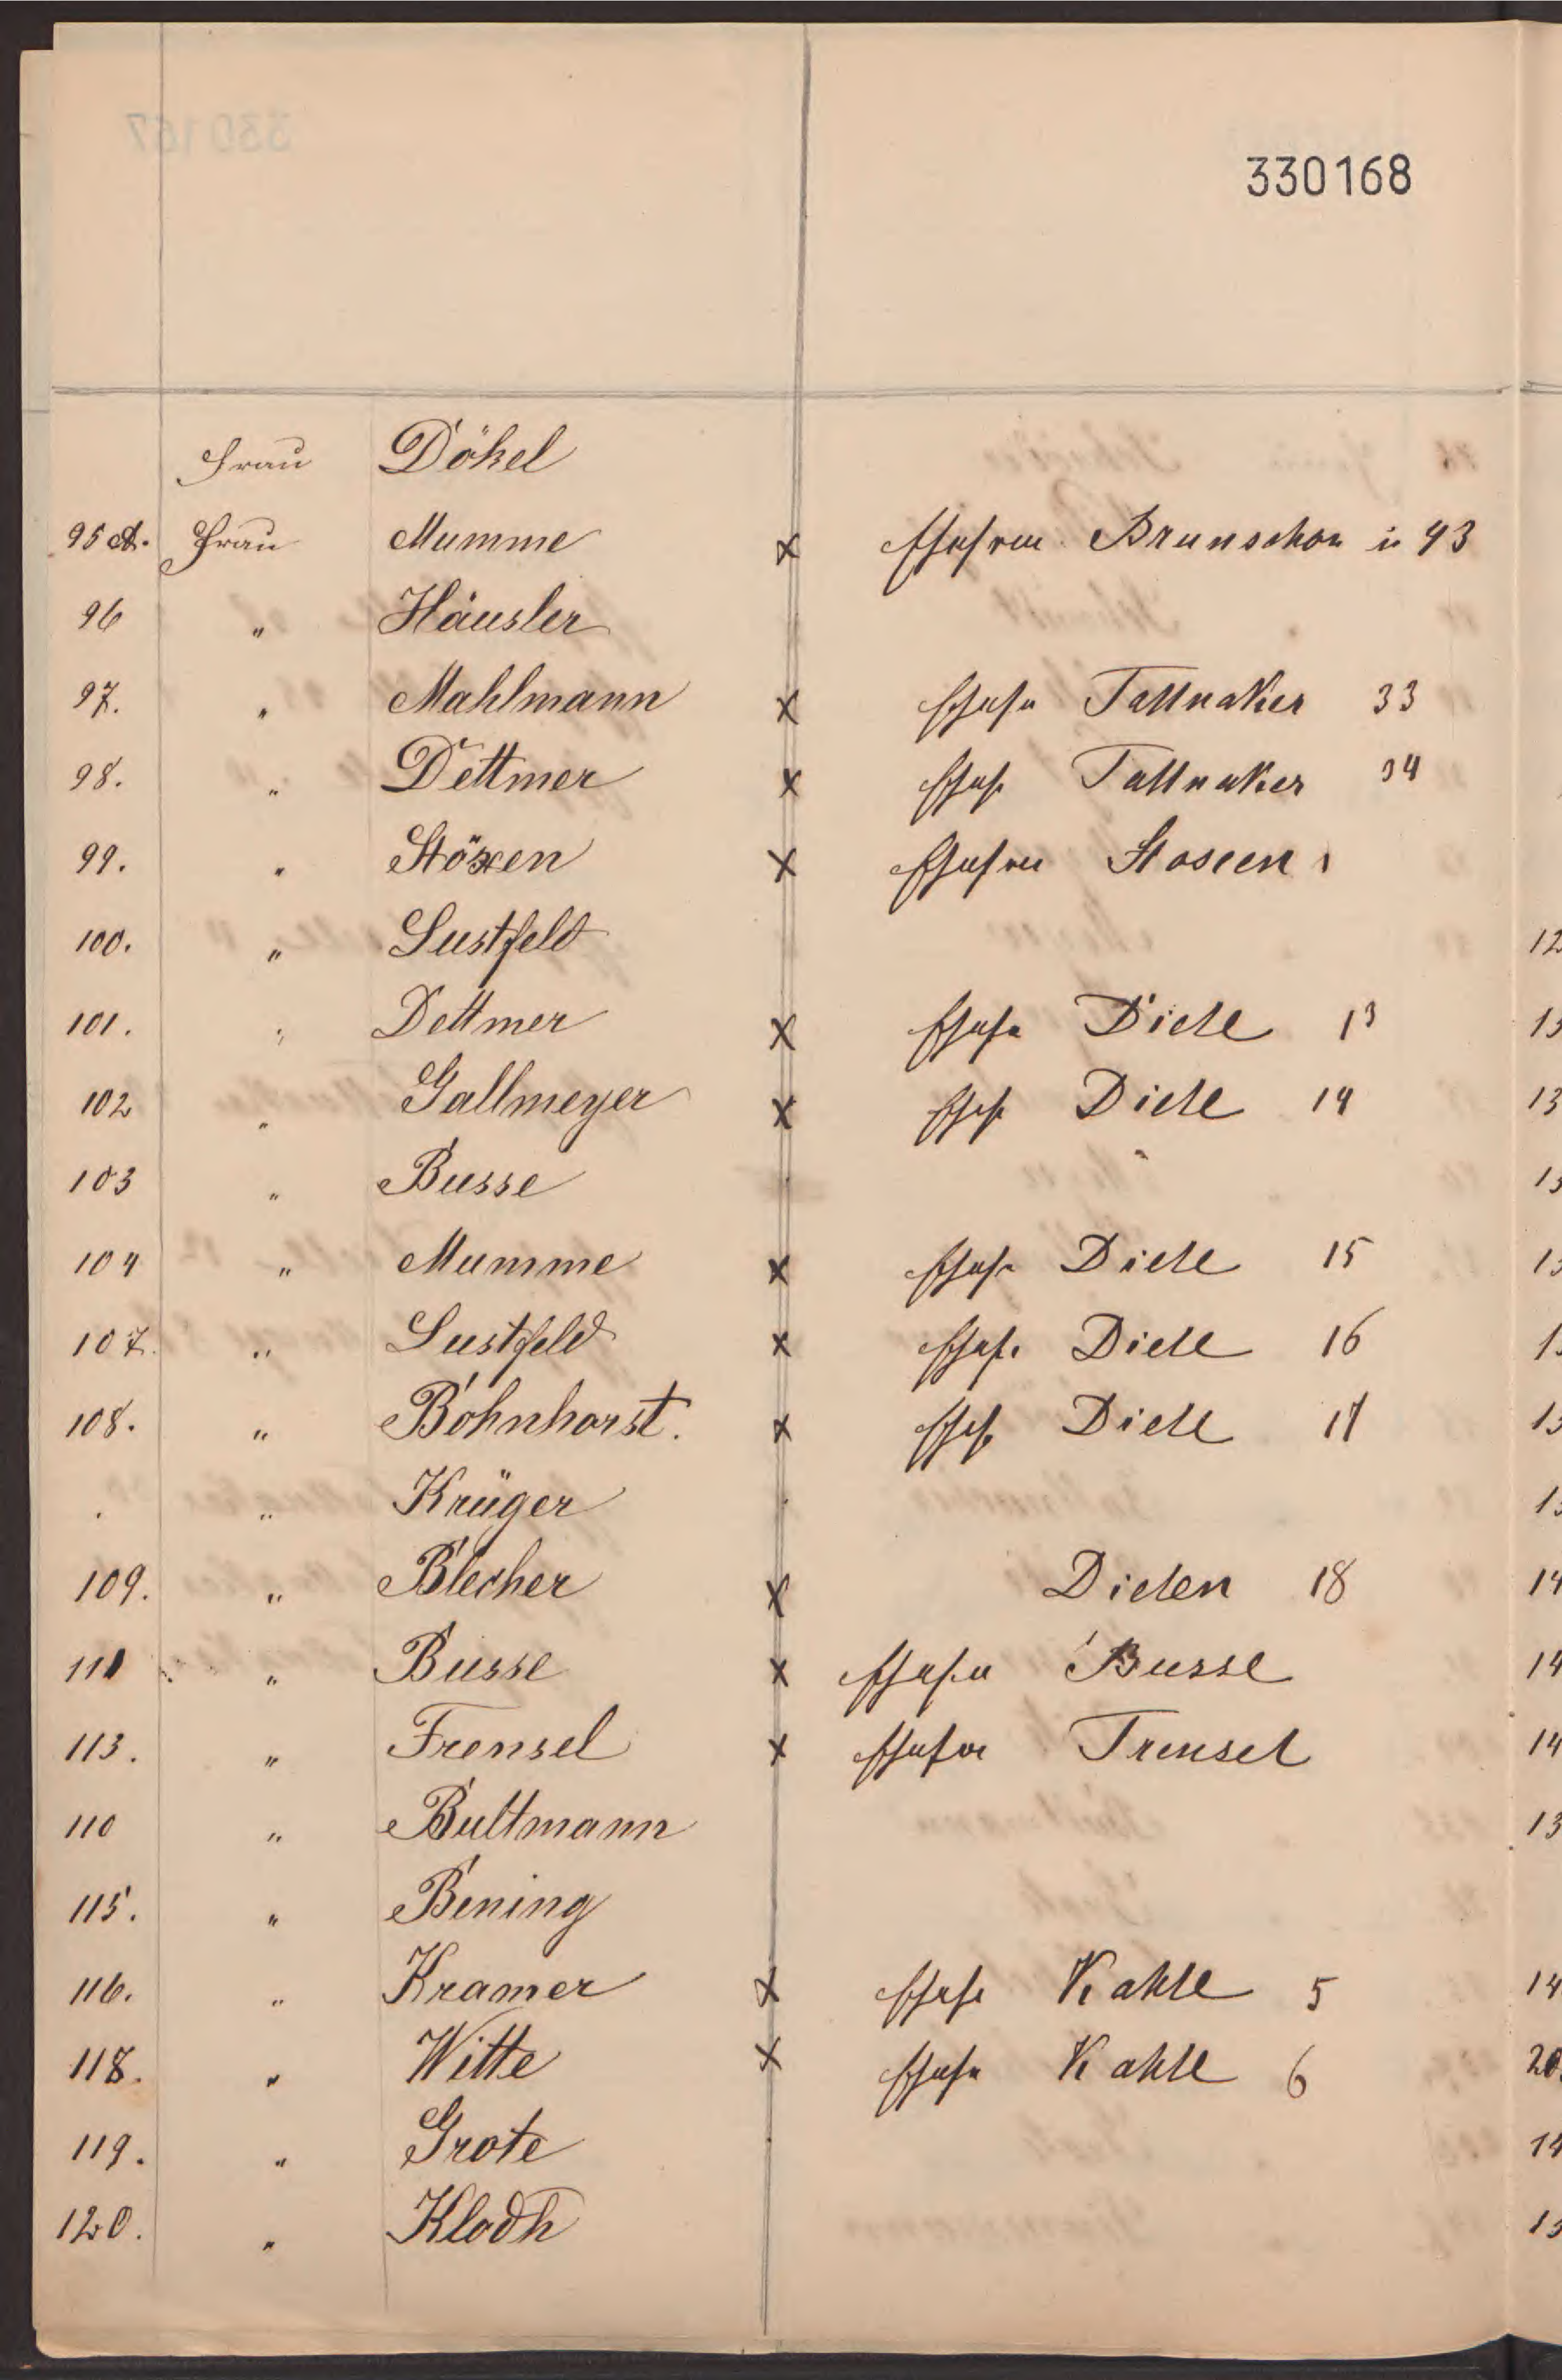 330168
Frau Dökel
95 A. Frau Mumme x Brunschon 43
96 " Häusler
97. " Mahlmann x Tattnaker 33
98. " Dettmer x Tattnaker 34
99. " Stöxen x Stoxen
100. " Lustfeld
101. " Dettmer x Diele 13
102 " Gallmeyer x Diele 14
103 " Busse
104 " Mumme x Diele 15
107. " Lustfeld x Diele 16
108. " Bohnhorst. x Diele 17
" Krüger
109. " Blecher x Dielen 18
111 " Busse x Busse
113. " Frensel x Trensel
110 " Bultmann
115. " Bening
116. " Kramer x Kahle 5
118. " Witte x Kahle 6
119. " Grote
120. " Klodh